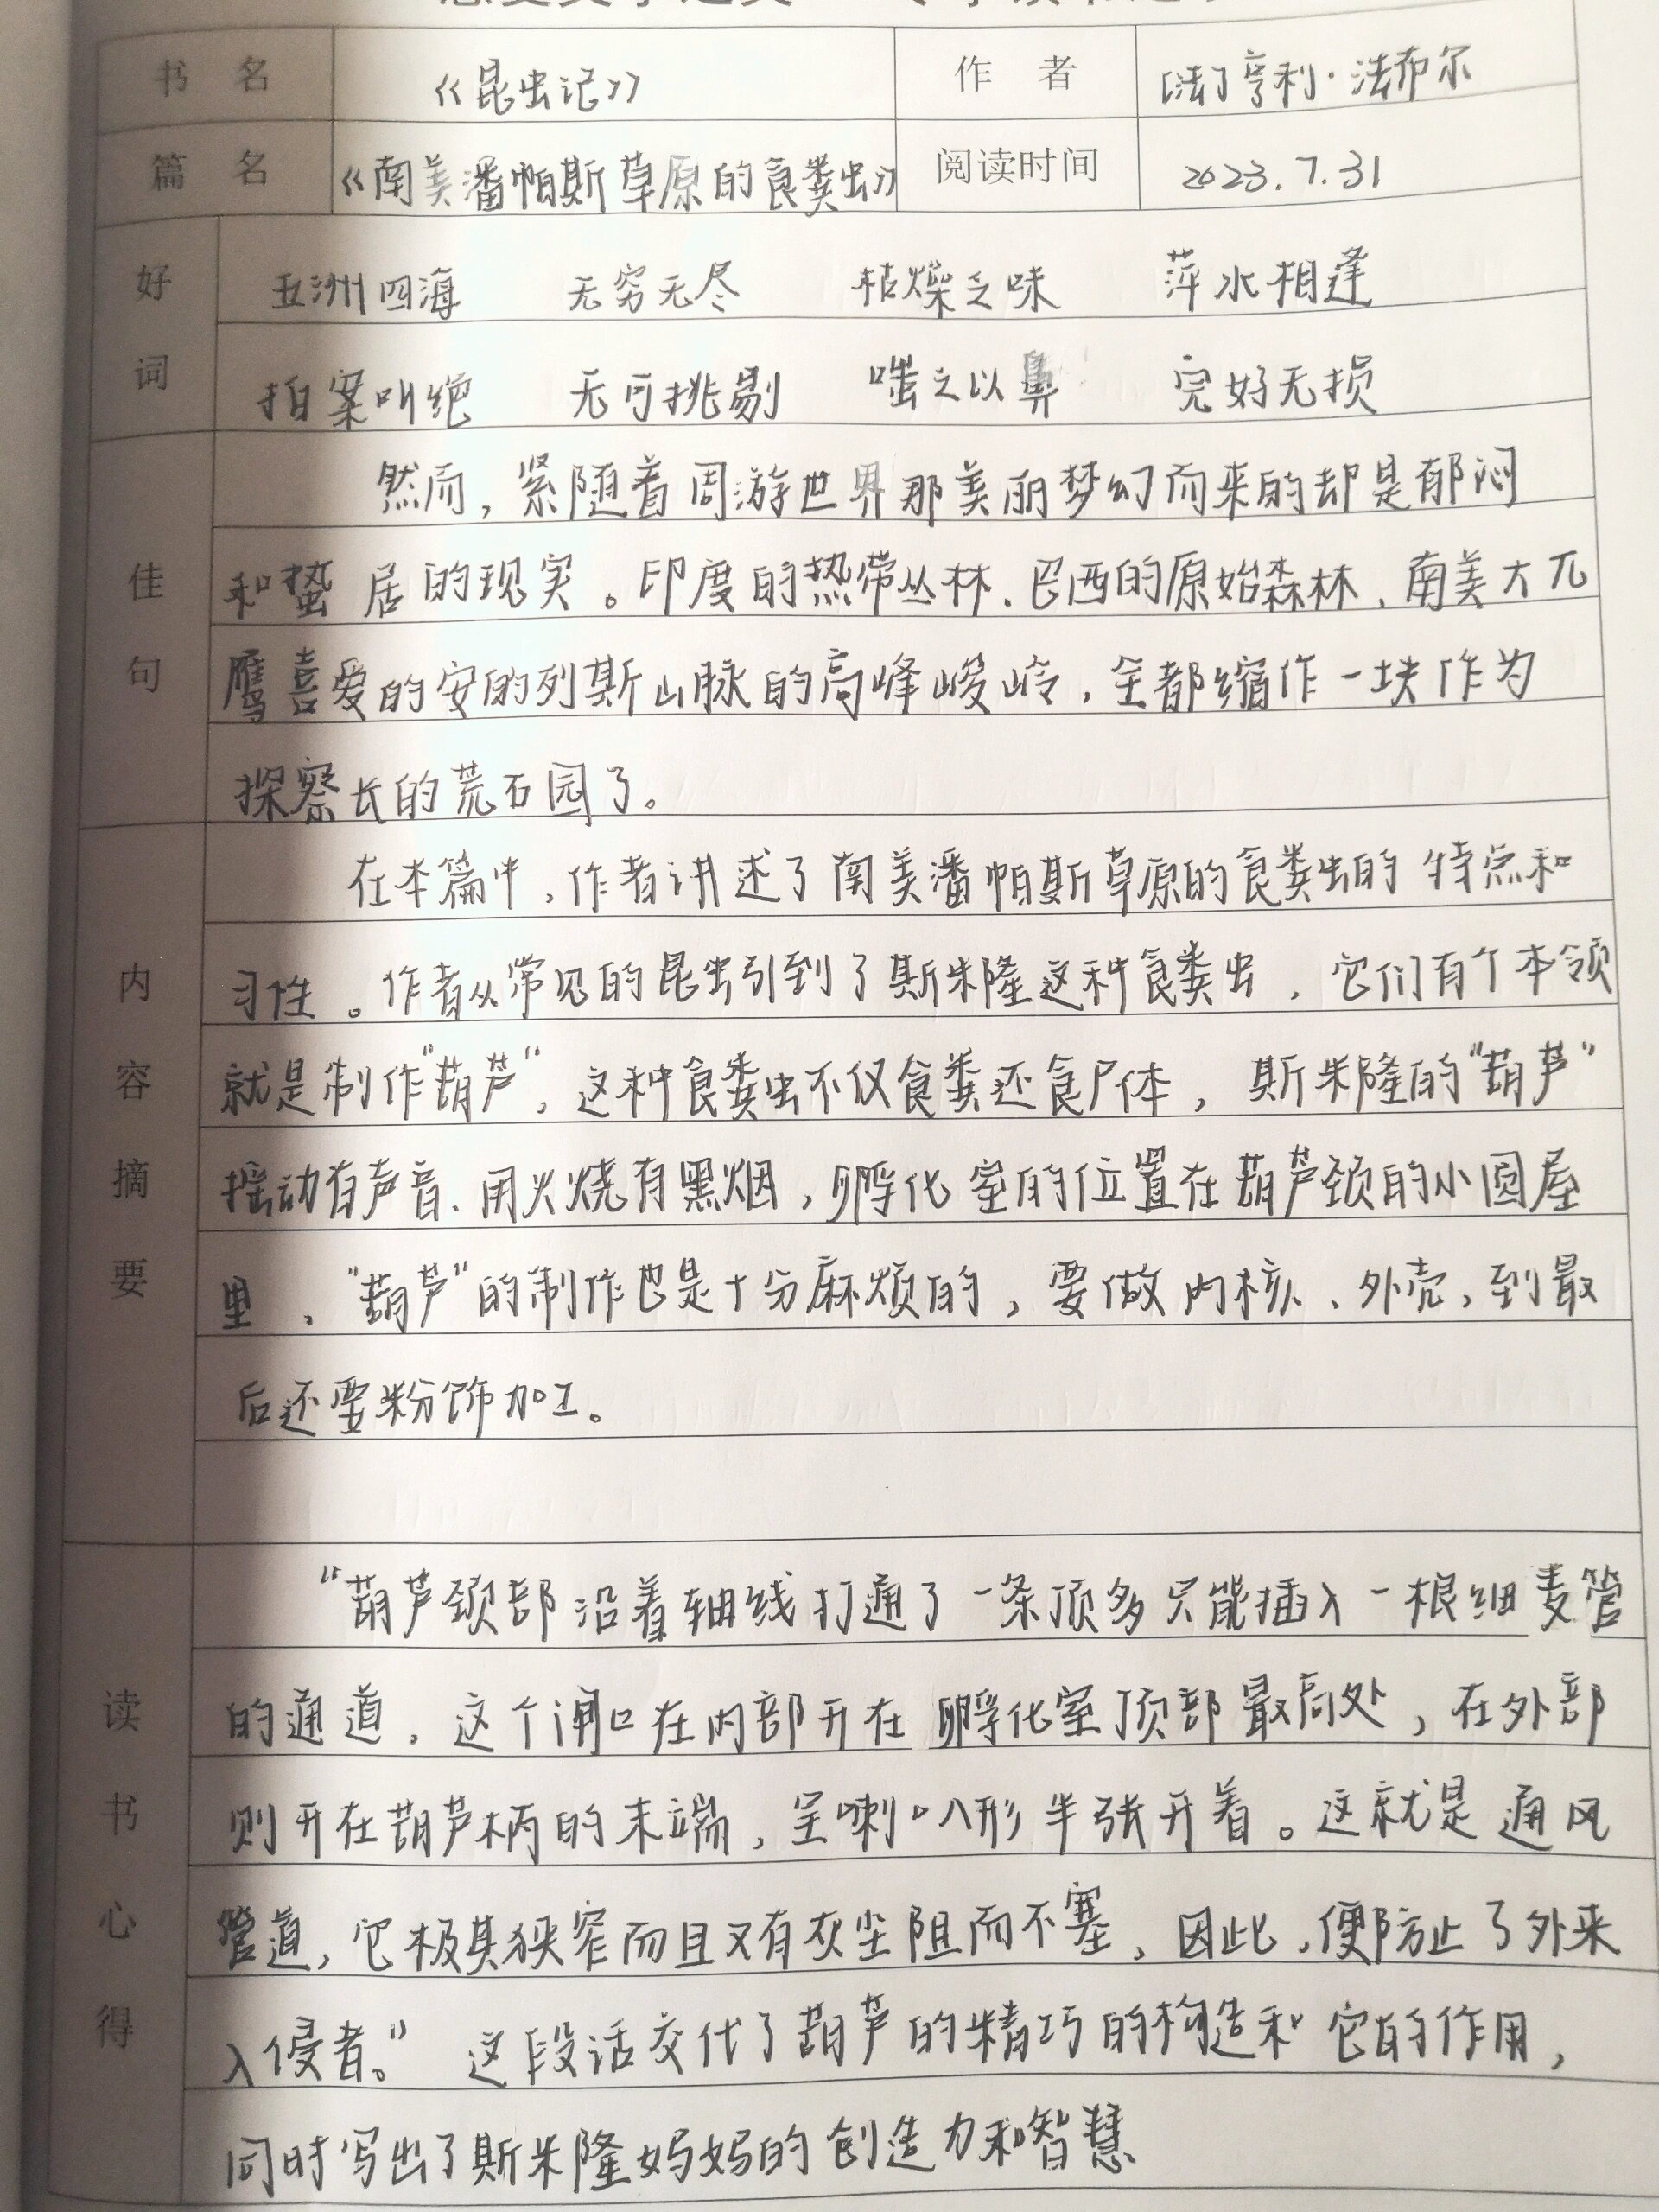 书 名 《昆虫记》 作 者 [法]亨利·法布尔
篇 名 《南美潘帕斯草原的食粪虫》 阅读时间 2023.7.31
好词
五洲四海 无穷无尽 枯燥之味 萍水相逢
拍案叫绝 无可挑剔 嗤之以鼻 完好无损
佳句
然而，紧随着周游世界那美丽梦幻而来的却是郁闷
和蛰居的现实。印度的热带丛林、巴西的原始森林、南美大兀
鹰喜爱的安的列斯山脉的高峰峻岭，全都缩作一块作为
探察长的荒石园了。
内容摘要
在本篇中，作者讲述了南美潘帕斯草原的食粪虫的特点和
习性。作者从常见的昆虫引到了斯朱隆这种食粪虫，它们有个本领
就是制作“葫芦”，这种食粪虫不仅食粪还食尸体，斯朱隆的“葫芦”
摇动有声音、用火烧有黑烟，孵化室的位置在葫芦颈的小圆屋
里，“葫芦”的制作也是十分麻烦的，要做内核、外壳，到最
后还要粉饰加工。
读书心得
“葫芦颈部沿着轴线打通了一条顶多只能插入一根细麦管
的通道，这个闸口在内部开在孵化室顶部最高处，在外部
则开在葫芦柄的末端，呈喇叭形半张开着。这就是通风
管道，它极其狭窄而且又有灰尘阻而不塞，因此，便防止了外来
入侵者。”这段话交代了葫芦的精巧的构造和它的作用，
同时写出了斯朱隆妈妈的创造力和智慧